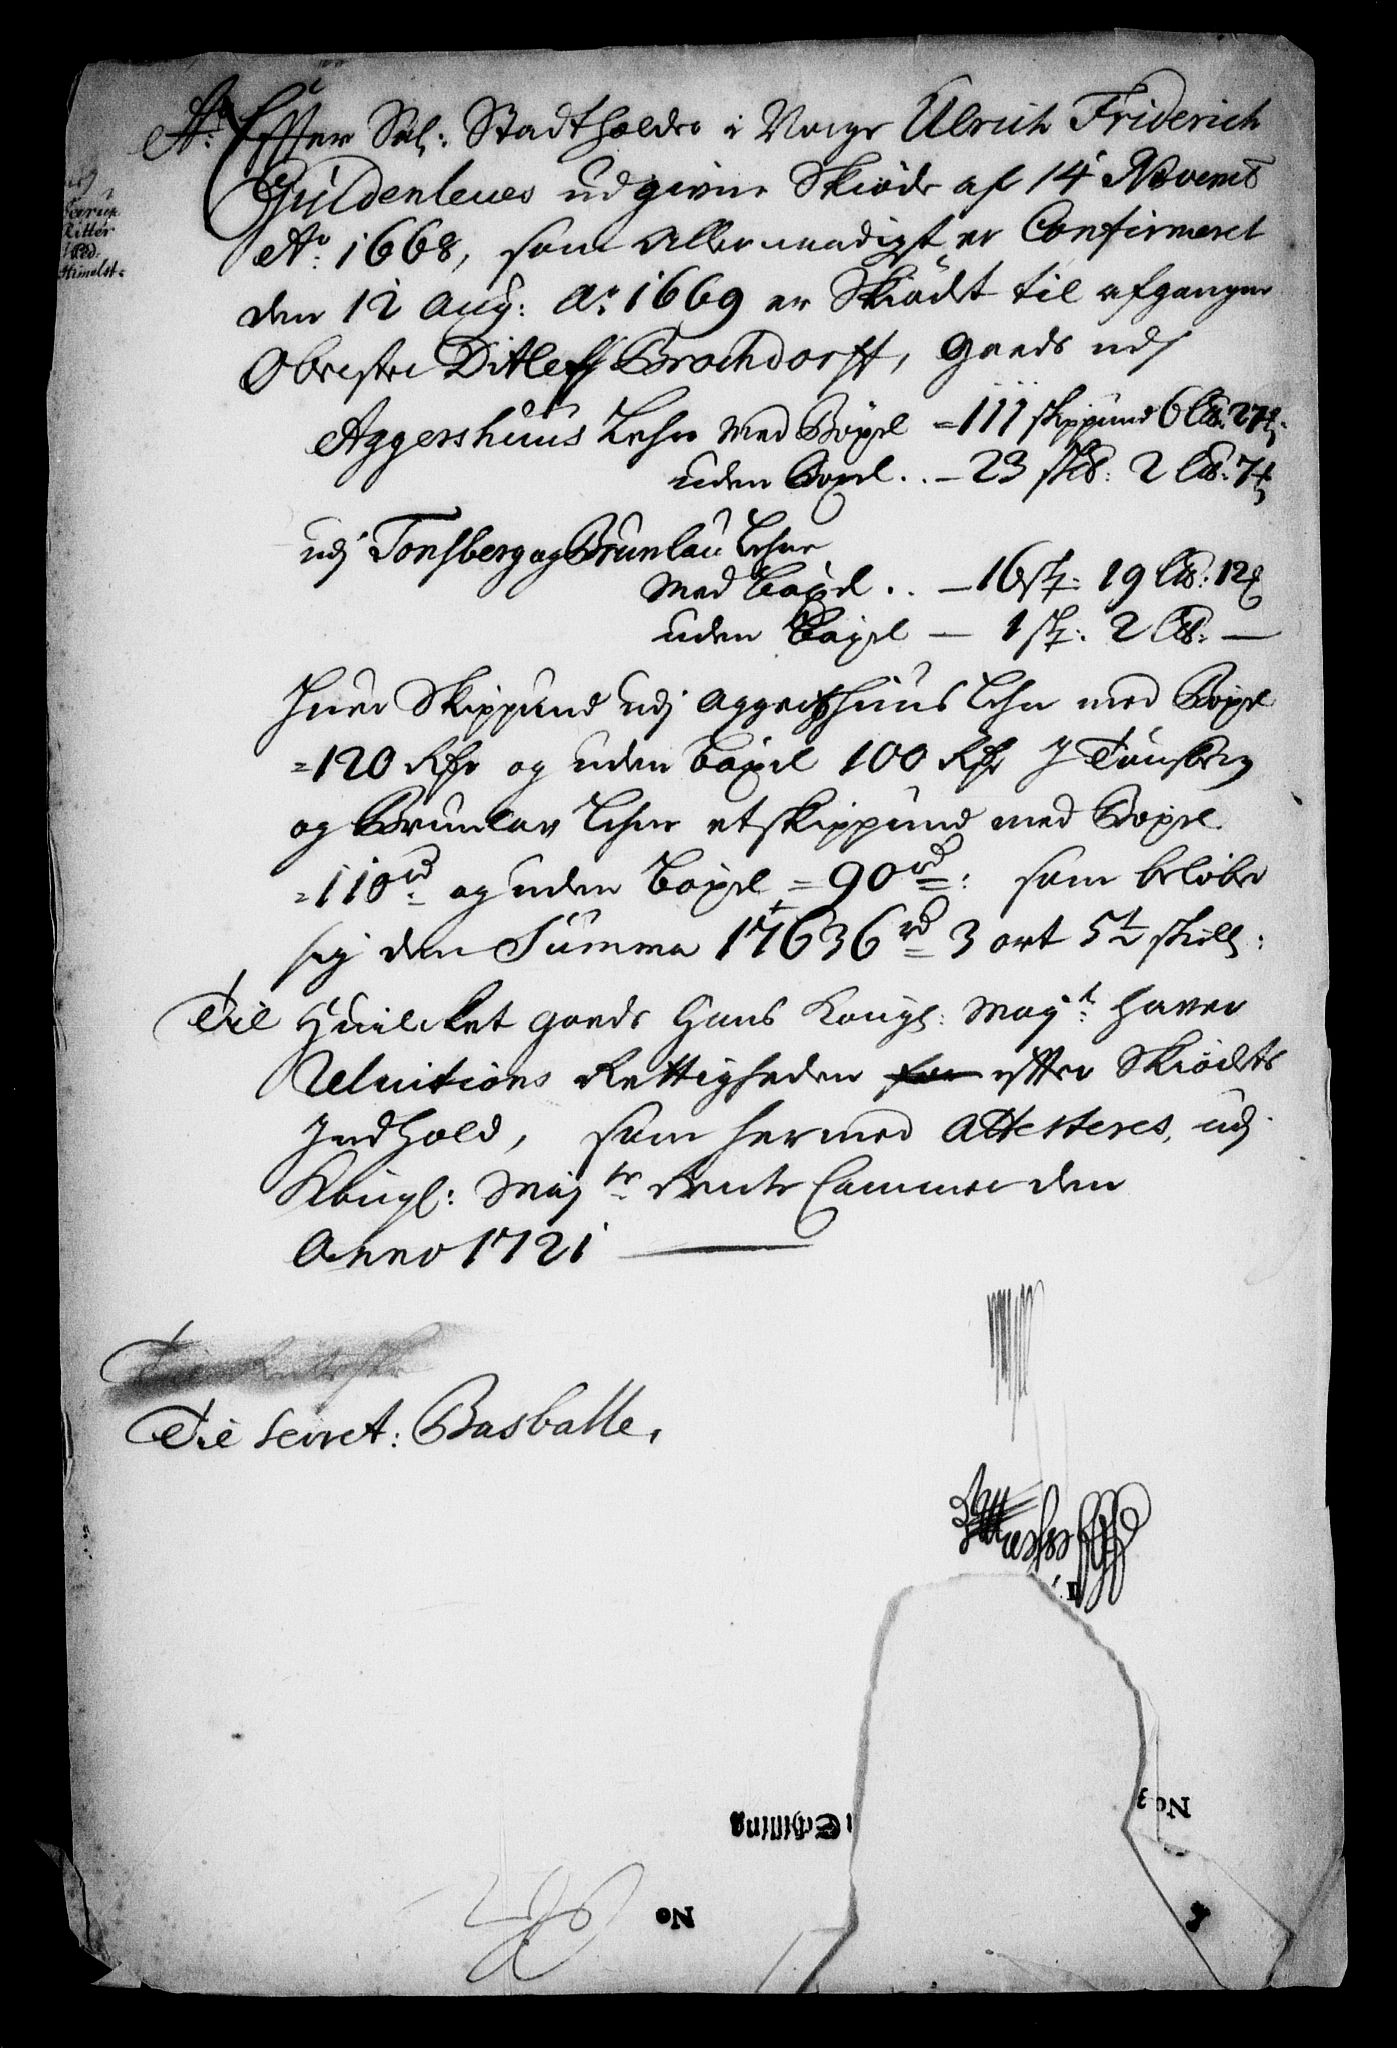 Ao: Effter Sal: Stadtholder i Norge Ulrich Friderich
Guldenleues udgivne Skiøde af 14 Novemb
Ao: 1668, som Allernaadigst er Confirmeret
den 12 Aug: Ao 1669 er Skiødet til afgangne
Obreste Ditleff Brochdorff, Gods udj
Aggershuus Lehn med Bøxel = 111 skippund 6 L℔: 27
uden Boxel .. – 23 sk℔: 2 L℔: 7
udj Tonsberg og Brunlau Lehne
med bøxel .. – 16 sk: 19 L℔: 12
uden Bøxel — 1 sk: 2 L℔: —
Huer Skippund udj Aggershuus Lehn med Boxel
= 120 Rdr og uden bøxel 100 Rdr J Tønsberg
og Brunlav Lehne et skippund med Boxel
= 110 rd og uden bøxel = 90 rd: som beløber
sig den Summa 17636 rd 3 ort 5½ skill:
Til Huilcket gods Hans Kongl: Mayt: haver
Reluitions Rettigheden for effter Skiødets
Jndhold, som hermed Attesteres, udj
Kongl: Maj tz Rente Cammer den
Anno 1721
Til Secret: Basballe,
Skilling
No 3
No
Ritter